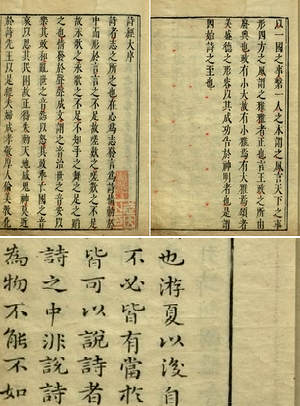 詩經大序
詩者志之所之也在心為志發言為詩情動於
中而形於言言之不足故嗟歎之嗟歎之不足
故永歌之永歌之不足不知手之舞之足之蹈
之也情發於聲聲成文謂之音治世之音安以
樂其政和亂世之音怨以怒其政乖亡國之音
哀以思其民困故正得失動天地感鬼神莫近
於詩先王以是經夫婦成孝敬厚人倫美教化
以一國之事繫一人之本謂之風言天下之事
形四方之風謂之雅雅者正也言王政之所由
廢興也政有小大故有小雅焉有大雅焉頌者
美盛德之形容以其成功告於神明者也是謂
四始詩之至也
也游夏以後自
不必皆有當於
皆可以說詩者
詩之中非說詩
為物不能不如